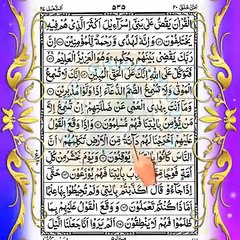 اَمَّنْ خَلَقَ ٢٠ ٥٣٥ النَّمْل ٢٧
الْقُرْاٰنَ يَقُصُّ عَلٰى بَنِىْٓ اِسْرَآءِيْلَ اَكْثَرَ الَّذِىْ هُمْ فِيْهِ
يَخْتَلِفُوْنَ ۝ وَاِنَّهٗ لَهُدًى وَّرَحْمَةٌ لِّلْمُؤْمِنِيْنَ ۝ اِنَّ
رَبَّكَ يَقْضِىْ بَيْنَهُمْ بِحُكْمِهٖ ۚ وَهُوَ الْعَزِيْزُ الْعَلِيْمُ ۝
فَتَوَكَّلْ عَلَى اللّٰهِ ؕ اِنَّكَ عَلَى الْحَقِّ الْمُبِيْنِ ۝ اِنَّكَ لَا تُسْمِعُ
الْمَوْتٰى وَلَا تُسْمِعُ الصُّمَّ الدُّعَآءَ اِذَا وَلَّوْا مُدْبِرِيْنَ ۝
وَمَآ اَنْتَ بِهٰدِى الْعُمْىِ عَنْ ضَلٰلَتِهِمْ ؕ اِنْ تُسْمِعُ اِلَّا
مَنْ يُّؤْمِنُ بِاٰيٰتِنَا فَهُمْ مُّسْلِمُوْنَ ۝ وَاِذَا وَقَعَ الْقَوْلُ
عَلَيْهِمْ اَخْرَجْنَا لَهُمْ دَآبَّةً مِّنَ الْاَرْضِ تُكَلِّمُهُمْ ۙ اَنَّ
النَّاسَ كَانُوْا بِاٰيٰتِنَا لَا يُوْقِنُوْنَ ۝ وَيَوْمَ نَحْشُرُ مِنْ كُلِّ
اُمَّةٍ فَوْجًا مِّمَّنْ يُّكَذِّبُ بِاٰيٰتِنَا فَهُمْ يُوْزَعُوْنَ ۝ حَتّٰٓى
اِذَا جَآءُوْ قَالَ اَكَذَّبْتُمْ بِاٰيٰتِىْ وَلَمْ تُحِيْطُوْا بِهَا عِلْمًا
اَمَّاذَا كُنْتُمْ تَعْمَلُوْنَ ۝ وَوَقَعَ الْقَوْلُ عَلَيْهِمْ بِمَا
ظَلَمُوْا فَهُمْ لَا يَنْطِقُوْنَ ۝ اَلَمْ يَرَوْا اَنَّا جَعَلْنَا الَّيْلَ